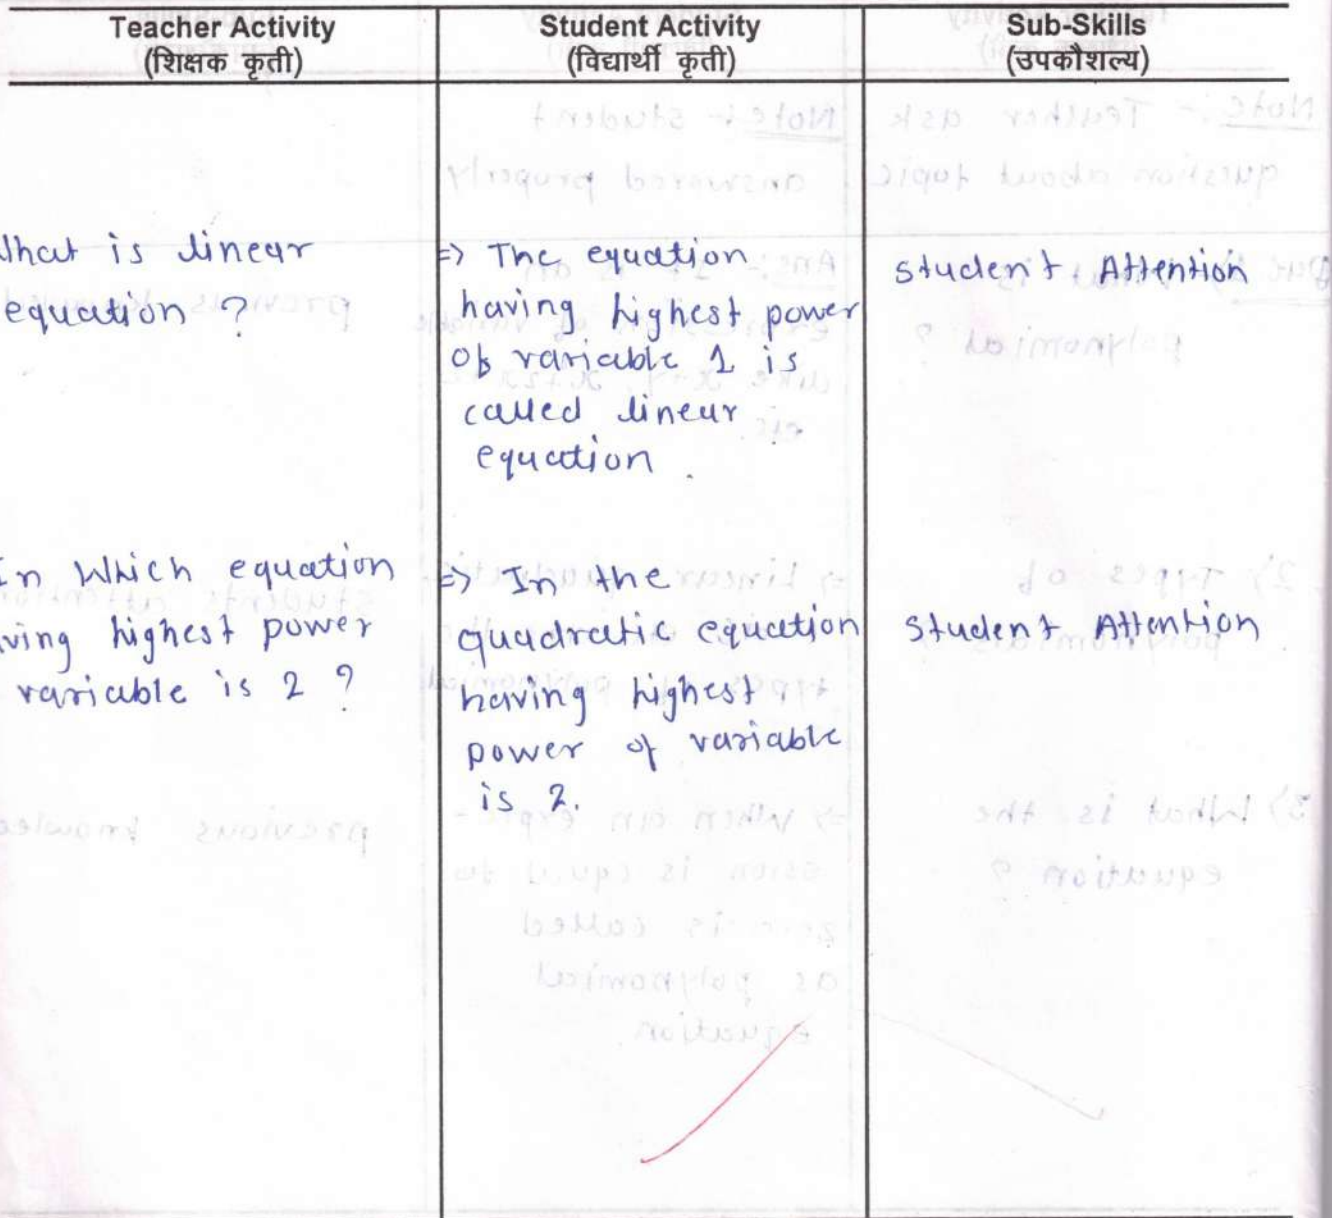 Teacher Activity
(शिक्षक कृती)
Student Activity
(विद्यार्थी कृती)
Sub-Skills
(उपकौशल्य)
What is linear
equation ?
=> The equation
having highest power
of variable 1 is
called linear
equation .
Student Attention
In Which equation
ving highest power
variable is 2 ?
=> In the
quadratic equation
having highest
power of variable
is 2.
Student Attention